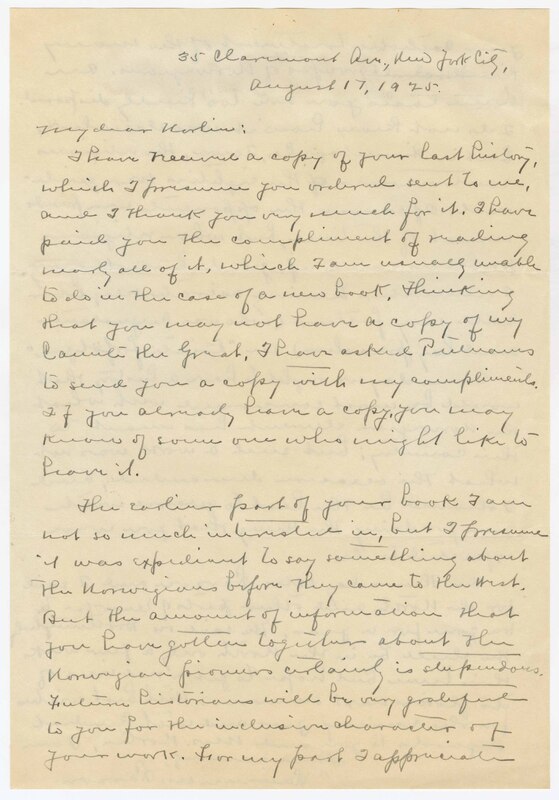 35 Claremont Ave., New York City,
August 17, 1925.
My dear Norlie:
I have received a copy of your last history,
which I presume you ordered sent to me,
and I thank you very much for it. I have
paid you the compliment of reading
nearly all of it, which I am usually unable
to do in the case of a new book. Thinking
that you may not have a copy of my
Canute the Great, I have asked Putnams
to send you a copy with my compliments.
If you already have a copy, you may
know of some one who might like to
have it.
The earlier part of your book I am
not so much interested in, but I presume
it was expedient to say something about
the Norwegians before they came to the West.
But the amount of information that
you have gotten together about the
Norwegian pioneers certainly is stupendous.
Future historians will be very grateful
to you for the inclusive character of
your work. For my part I appreciate